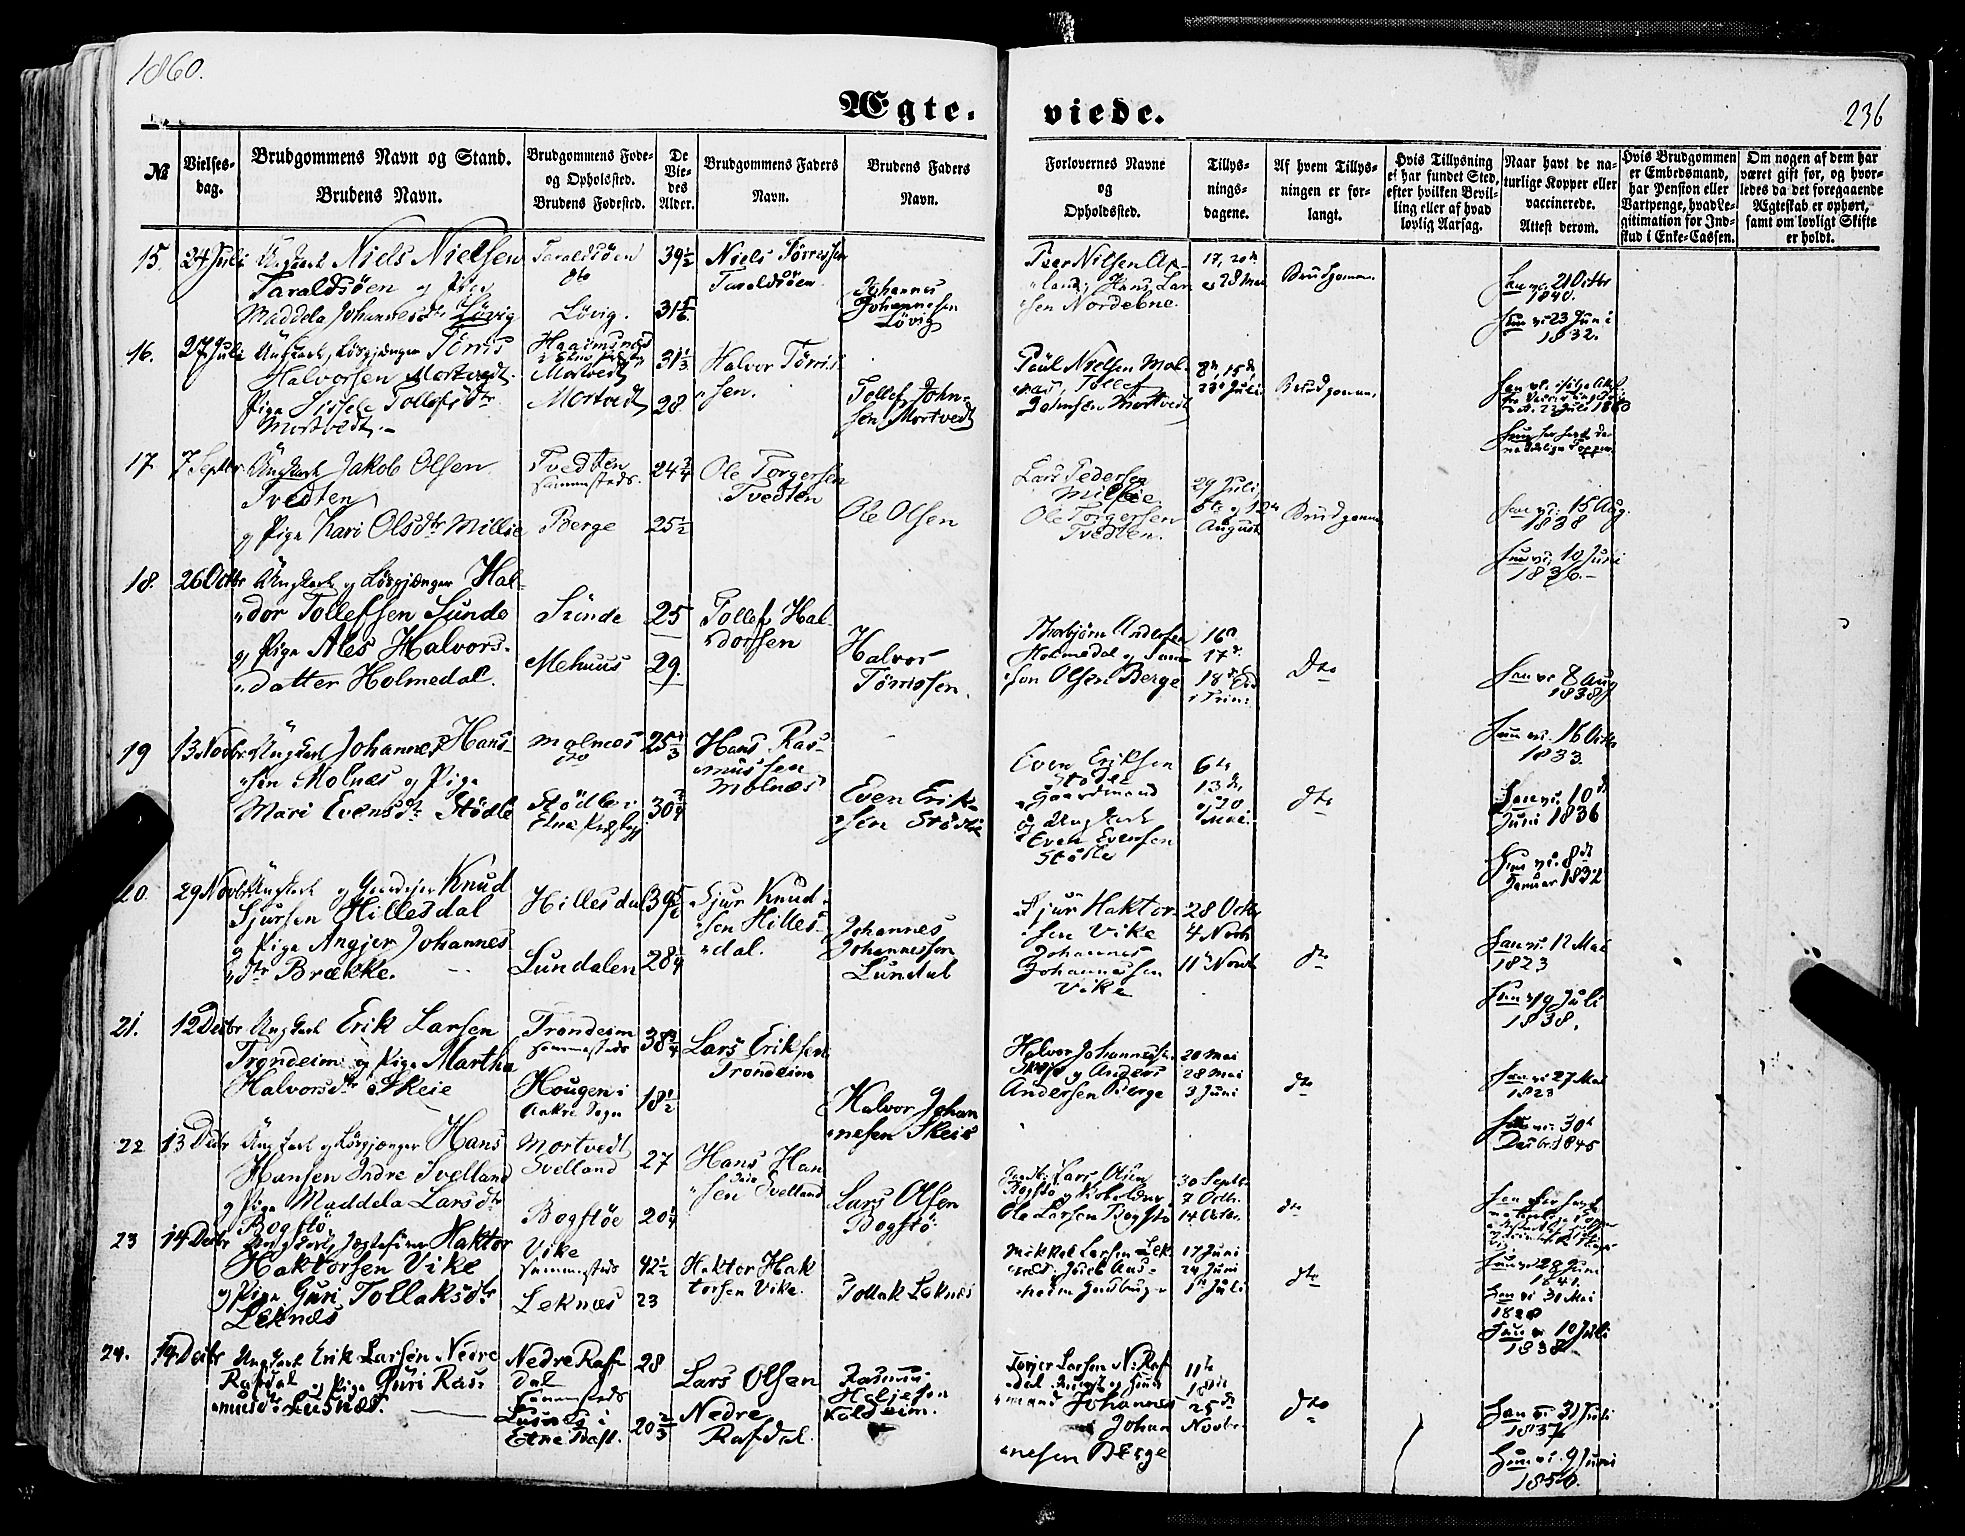 1860.
236
Ægte. viede.
№
Vielses-
dag.
Brudgommens Navn og Stand.
Brudens Navn.
Brudgommens Føde-
og Opholdsted.
Brudens Fødested.
De
Vie-
des
Alder.
Brudgommens Faders
Navn.
Brudens Faders
Navn.
Forlovernes Navne
og
Opholdsted.
Tillys-
nings-
dagene.
Af hvem Tillys-
ningen er for-
langt.
Hvis Tillysning
ei har fundet Sted,
efter hvilken Bevil-
ling eller af hvad
lovlig Aarsag.
Naar havt de na-
turlige Kopper eller
vaccinerede.
Attest derom.
Hvis Brudgommen
er Embedsmand,
har Pension eller
Vartpenge, hvad Le-
gitimation for Ind-
skud i Enke-Cassen.
Om nogen af dem har
været gift før, og hvor-
ledes da det foregaaende
Ægteskab er ophørt,
samt om lovligt Skifte
er holdt.
15. 24 Juli Ungkarl Niels Nielsen
Taraldsøen og Pige
Maddela Johannesdtr Løvig
Taraldsøen
dto
Løvig.
39½
31 5/6
Niels Tørressen
Taraldsøen
Johannes
Johannesen
Løvig
Peer Nilsen Ap-
land, Hans Lar
sen Nordebne.
17, 20de
28 Mai
Brudgommen
Han vc. 21 Octbr
1840.
Hun vi 23 Juni
1832.
16. 27 Juli Ungkarl, Løsgjænger Tørris
Halvorsen Mortvedt.
Pige Sissele Tollefsdtr
Mortvedt.
Mortvedt
Mortvedt
31⅓
28
Halvor Tørris-
sen.
Tollef John-
sen Mortvedt
Paul Nielsen Mol-
næs, Tollef
Johnsen Mortvedt
8de, 15de,
22de Juli
Brudgommen
17 7 Septbr Ungkarl Jakob Olsen
Tvedten
og Pige Kari Olsdtr Millie
Tvedten
sammesteds.
Berge
24¾
25½
Ole Torgersen
Tvedten
Ole Olsen
Lars Pedersen
Millie
Ole Torgersen
Tvedten.
29 Juli,
5te og 12te
August
Brudgommen
Han vi: 15 Aug.
1838
Hun vi, 10 Juni
1836.
18. 26 Octbr Ungkarl og Løsgjænger Hal-
dor Tollefsen Sunde
og Pige Ales Halvors-
datter Holmedal.
Sunde
Mehuus
25
29.
Tollef Hal-
dorsen
Halvor
Tørrissen.
Thorbjørn Andersen
Holmedal og Sam-
son Olsen Berge
16de
17de
18de
i Trin:
Dto
Han vi 8 Aug
1838
Hun vi. 16 Octbr
1833.
19 13 Novbr Ungkarl Johannes Hans-
sen Molnæs og Pige
Mari Evensdtr Stødle
Molnæs
dto
Stødle i
Etne Præstegj
25⅓
30¾
Hans Ras-
mussen
Molnæs
Even Erik-
sen Stødle
Even Eriksen
Stødle
Gaardmand
og Ungkarl
Even Evensen
Stødle
6te
13de
20
Mai.
dto
Han vi. 10de
Juni 1836
Hun vi. 8de
Januar 1832
20. 29 Novbr Ungkarl og Gaardejer Knud
Sjursen Hillesdal
og Pige Angjer Johannes
dtr Brække.
Hillesdal
Lundalen
39 5/6
28¼
Sjur Knud-
sen Hilles-
dal.
Johannes
Johannessen
Lundal
Sjur Haktor-
sen Vike
Johannes
Johannessen
Vike
28 Octbr
4 Novb
11te Novbr
dto
Han vi 12 Mai
1823
Hun vi 9 Juli
1838.
21. 12 Decbr Ungkarl Erik Larsen
Trondeim og Pige Martha
Halvorsdtr Skeie
Trondeim
sammesteds
Hougen i
Aakre Sogn
38¾
18½
Lars Eriksen
Trondeim
Halvor Johan
nesen Skeie
Halvor Johannesen
Skeie og Anders
Andersen Berge
20 Mai
28 Mai
3 Juni
dto
Han vi 27 Mai
1823
Hun vi. 30te
Decbr 1845
22 13 Decbr Ungkarl og Løsgjænger Hans
Hansen Indre Svelland
og Pige Maddela Larsdtr
Bogstø.
Mortvedt
Svelland
Bogstøe
27
20¼
Hans Han
sen Svelland
Lars Olsen
Bogstø.
Lars Olsen
Bogstø og
Ole Larsen Bogstø
30 Septbr
7 Octbr.
14 Octbr.
dto
Hun vi 28 Juni
1841.
23 14 Decbr Ungkarl, Haktor
Haktorsen Vike
og Pige Guri Tollaksdtr
Leknæs
Vike
sammesteds
Leknæs
42½
23
Haktor Hak
torsen Vike.
Tollak Leknæs
Mikkel Larsen Lek
næs,
17 Juni
24 Juni
1ste Juli
dto
Han vi 31 Mai
1820
Hun vi 10 Juli
1838.
24. 14 Decbr Ungkarl Erik Larsen Nedre
Rafdal og Pige Guri Ras-
musdtr Lusnæs.
Nedre Raf-
dal
sammesteds
Lusnæs i
Etne Præst.
28
20⅔
Lars Olsen
Nedre
Rafdal.
Rasmus
Heljesen
Koldeim.
Torjer Larsen N. Raf
dal
mand Johannes
Johan
nesen Berge
11te
18de
25de
Novbr
dto
Han vi 31 Juli
1837
Hun vi. 9 Juni
1850.